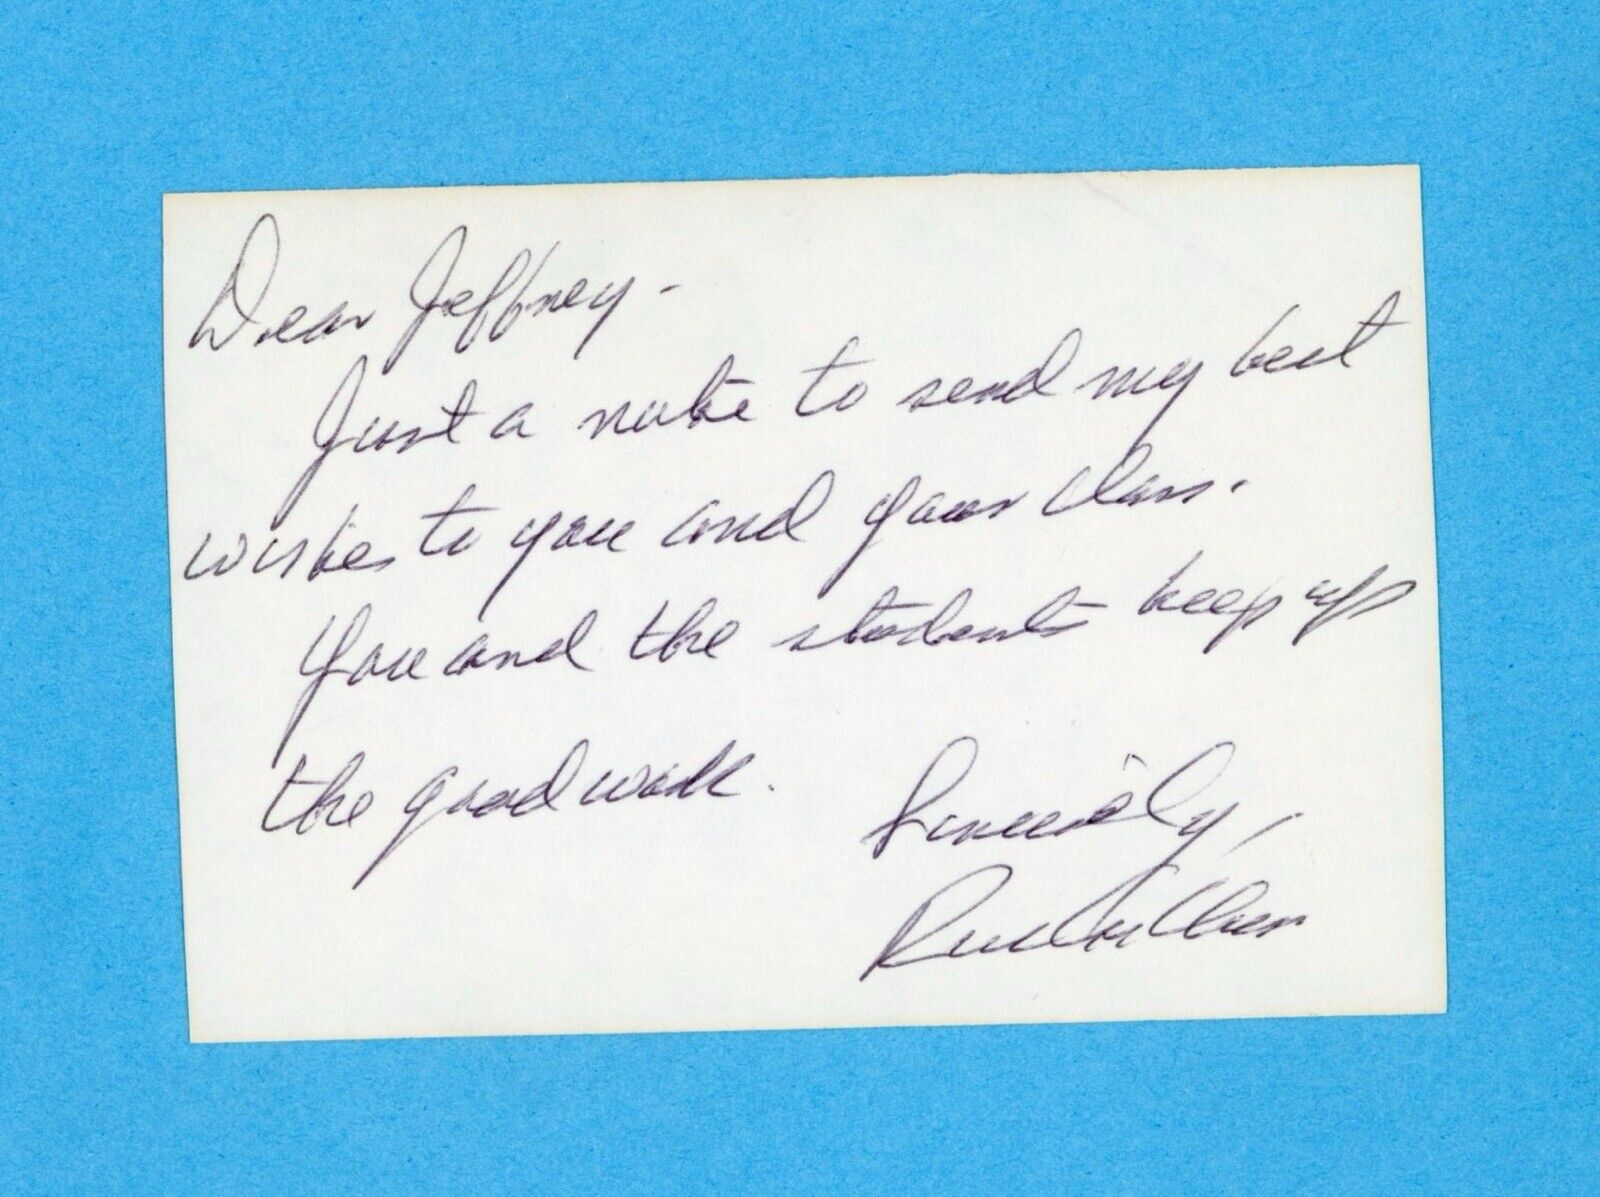 Dear Jeffrey-
Just a note to send my best
wishes to you and your class.
You and the students keep up
the good work.
Sincerely,